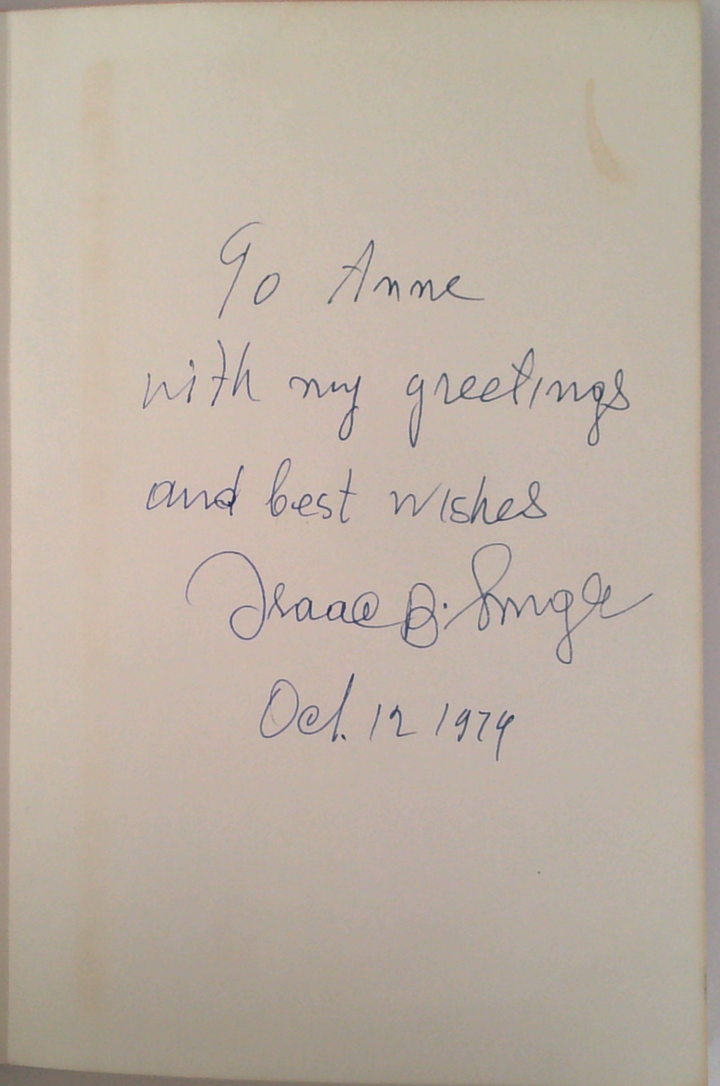 To Anne
with my greetings
and best wishes
Isaac B. Singer
Oct. 12 1974